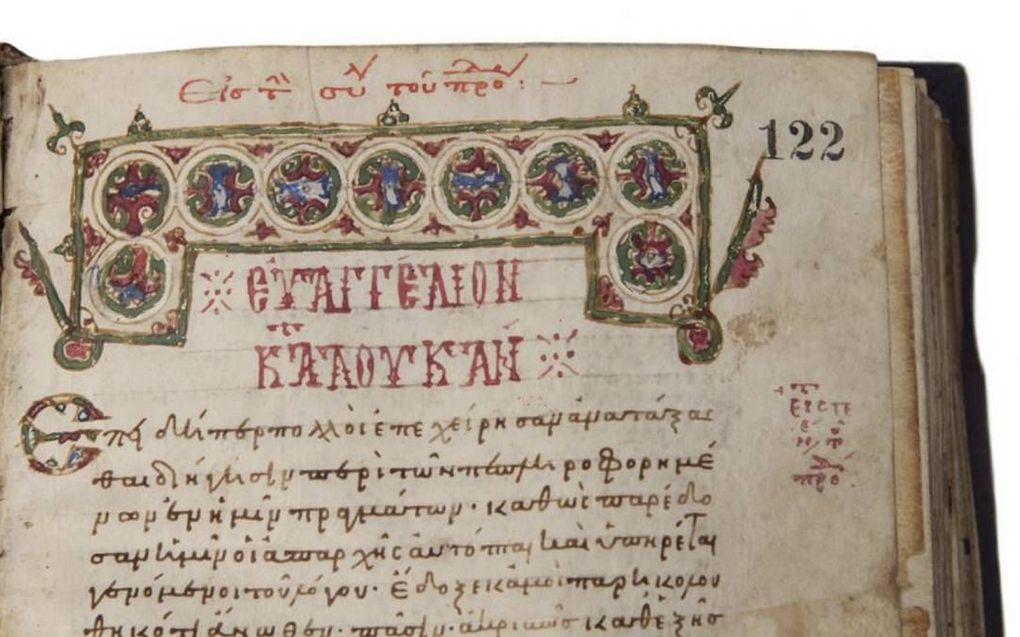 Εἰς τὴ συλ τοῦ προ :
122
ΕΥΑΓΓΕΛΙΟΝ
ΚΑΤ ΛΟΥΚΑΝ
Ἐπειδήπερ πολλοὶ ἐπεχείρησαν ἀνατάξασ
θαι διήγησιν περὶ τῶν πεπληροφορημέ
νων ἐν ἡμῖν πραγμάτων· καθὼς παρέδο
σαν ἡμῖν οἱ ἀπαρχῆς αὐτόπται καὶ ὑπηρέται
γενόμενοι τοῦ λόγου· Ἔδοξε κἀμοὶ παρηκολου
θηκότι ἄνωθεν· πᾶσιν· ἀκριβῶς καθεξῆς